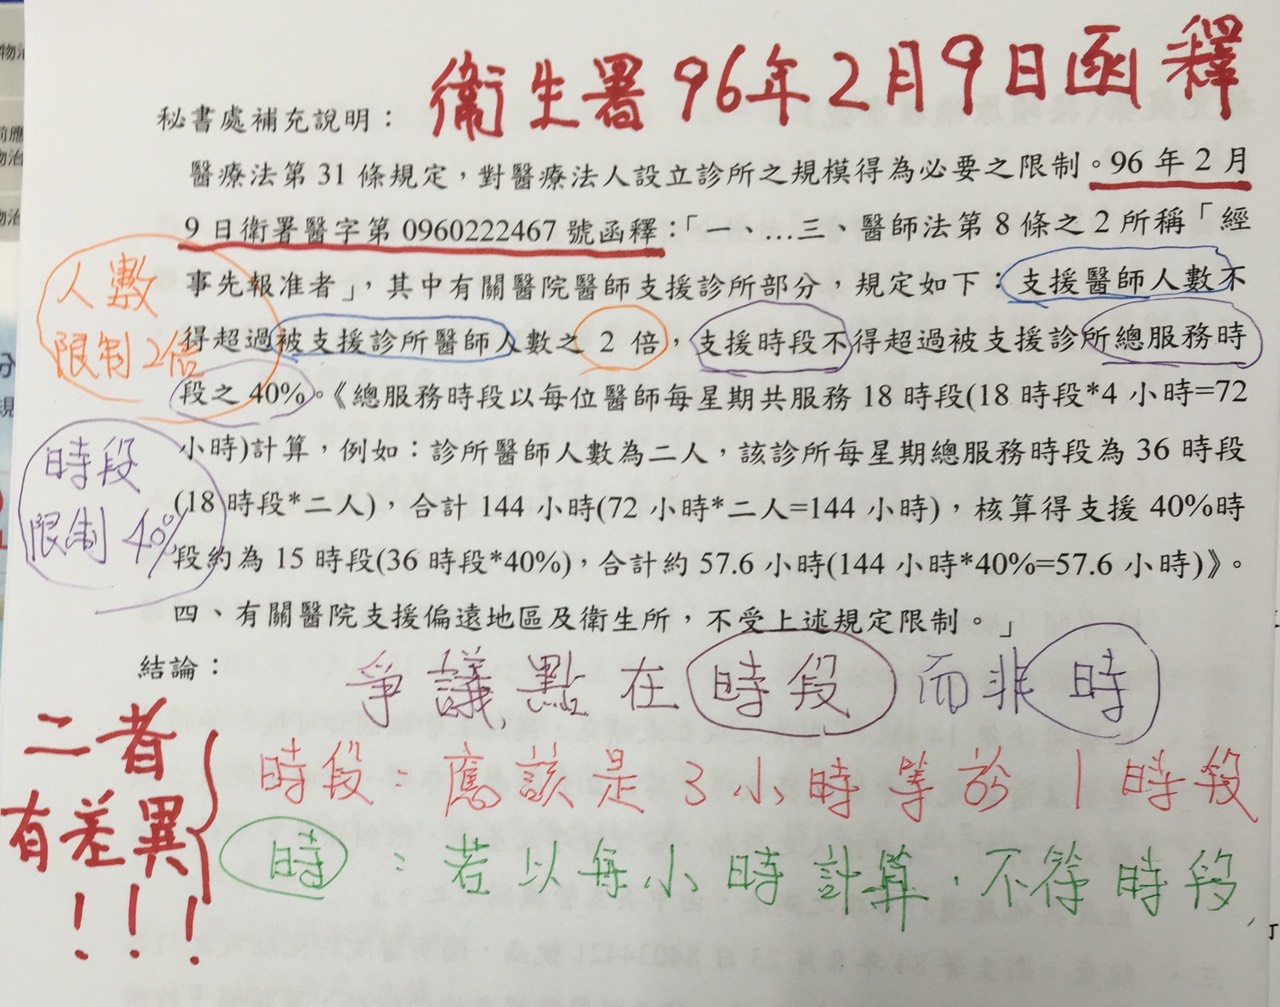 衛生署96年2月9日函釋
秘書處補充說明：
醫療法第 31 條規定，對醫療法人設立診所之規模得為必要之限制。96 年 2 月
9 日衛署醫字第 0960222467 號函釋：「一、…三、醫師法第 8 條之 2 所稱「經
事先報准者」，其中有關醫院醫師支援診所部分，規定如下：支援醫師人數不
得超過被支援診所醫師人數之 2 倍，支援時段不得超過被支援診所總服務時
段之 40%。《總服務時段以每位醫師每星期共服務 18 時段(18 時段*4 小時=72
小時)計算，例如：診所醫師人數為二人，該診所每星期總服務時段為 36 時段
(18 時段*二人)，合計 144 小時(72 小時*二人=144 小時)，核算得支援 40%時
段約為 15 時段(36 時段*40%)，合計約 57.6 小時(144 小時*40%=57.6 小時)》。
四、有關醫院支援偏遠地區及衛生所，不受上述規定限制。」
人數
限制2倍
時段
限制40%
結論：
爭議點在時段而非時
二者
有差異
!!!
時段：應該是3小時等於1時段
時：若以每小時計算，不符時段